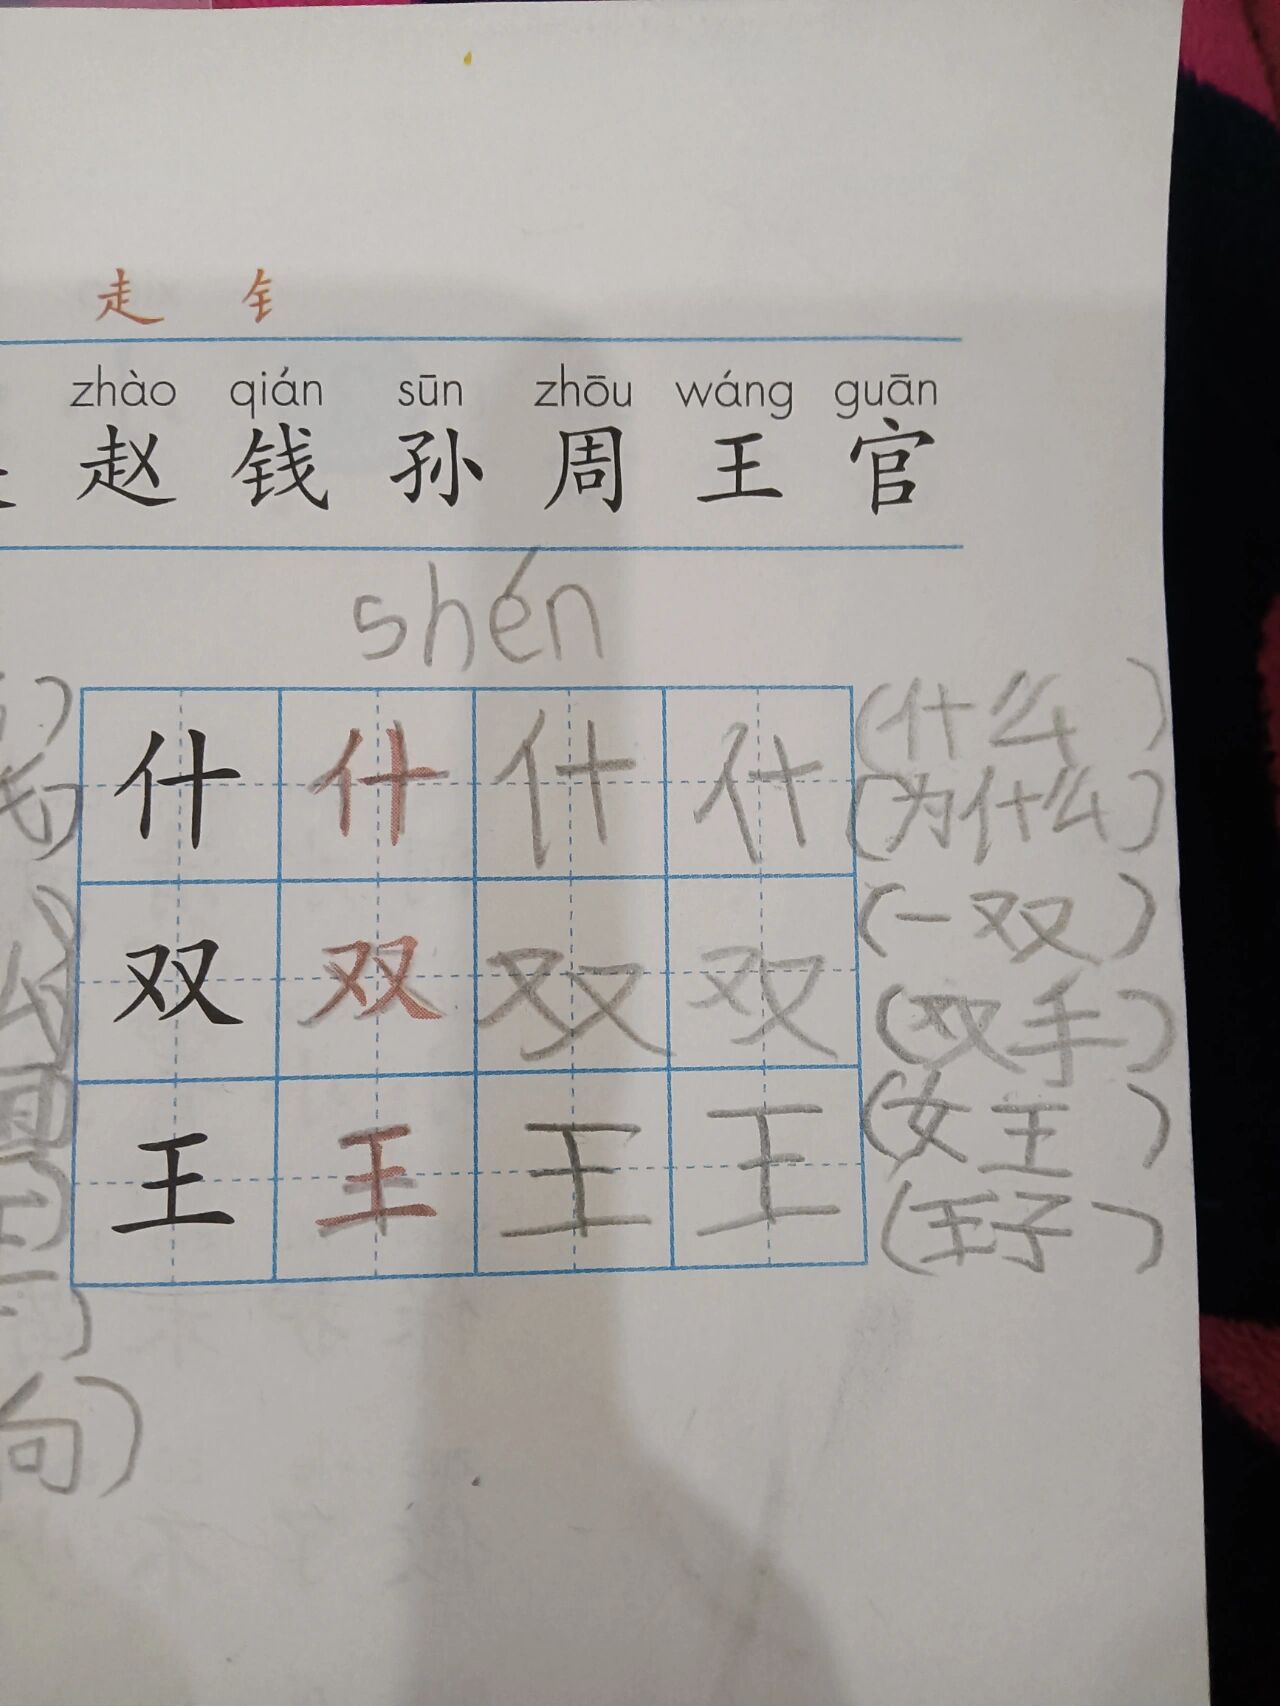 走 钅
zhào qián sūn zhōu wáng guān
赵 钱 孙 周 王 官
shén
什 什 什 什 (什么)
(为什么)
双 双 双 双 (一双)
(双手)
王 王 王 王 (女王)
(王子)
句)